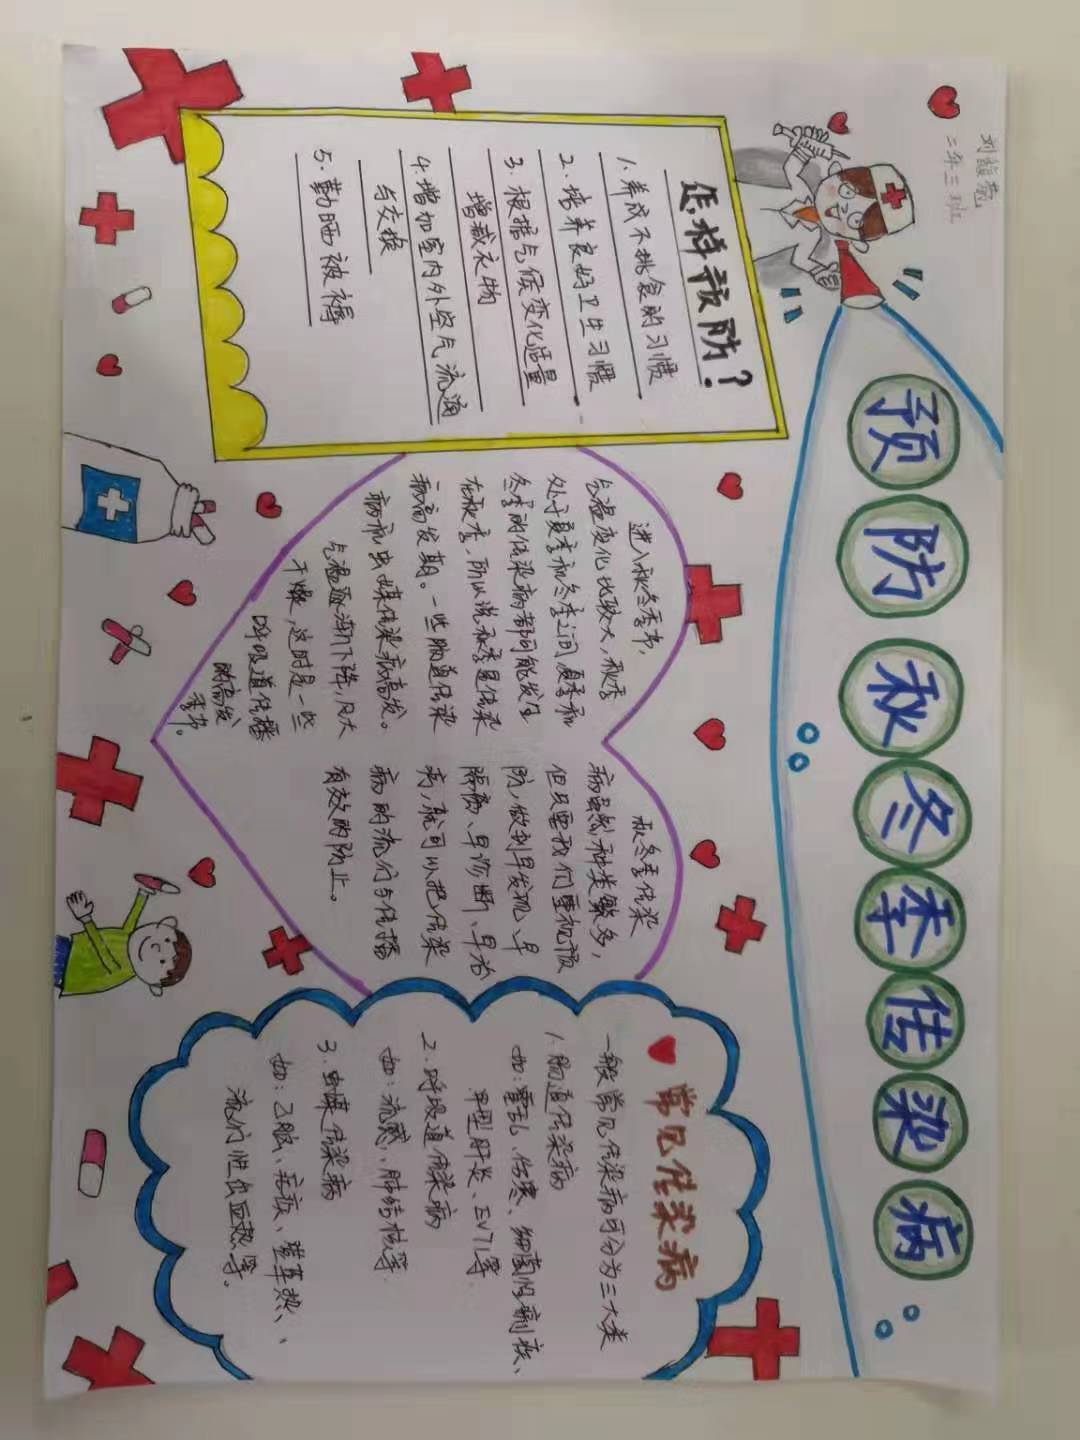 预防秋冬季传染病
二年三班
怎样预防?
1.养成不挑食的习惯
2.培养良好卫生习惯
3.根据气候变化适量
增减衣物
4.增加室内外空气流通
与交换
5.勤晒被褥
进入秋冬季节,
气温变化比较大,秋季
处于夏季和冬季之间夏季和
冬季的传染病都可能发生
在秋季,所以说秋季是传染
病高发期。一些肠道传染
病和虫媒传染病高发。
气温逐渐下降,风大
干燥,这时是一些
呼吸道传播
的高发
季节。
秋冬季传染
病虽然种类繁多,
但只要我们重视预
防,做到早发现、早
隔离、早诊断、早治
疗,就可以把传染
病的流行与传播
有效的防止。
常见传染病
一般常见传染病可分为三大类
1.肠道传染病
如:霍乱、伤寒、细菌性痢疾、
甲型肝炎、EV71等.
2.呼吸道传染病
如:流感、肺结核等.
3.虫媒传染病
如:乙脑、疟疾、登革热、
流行性出血热等。